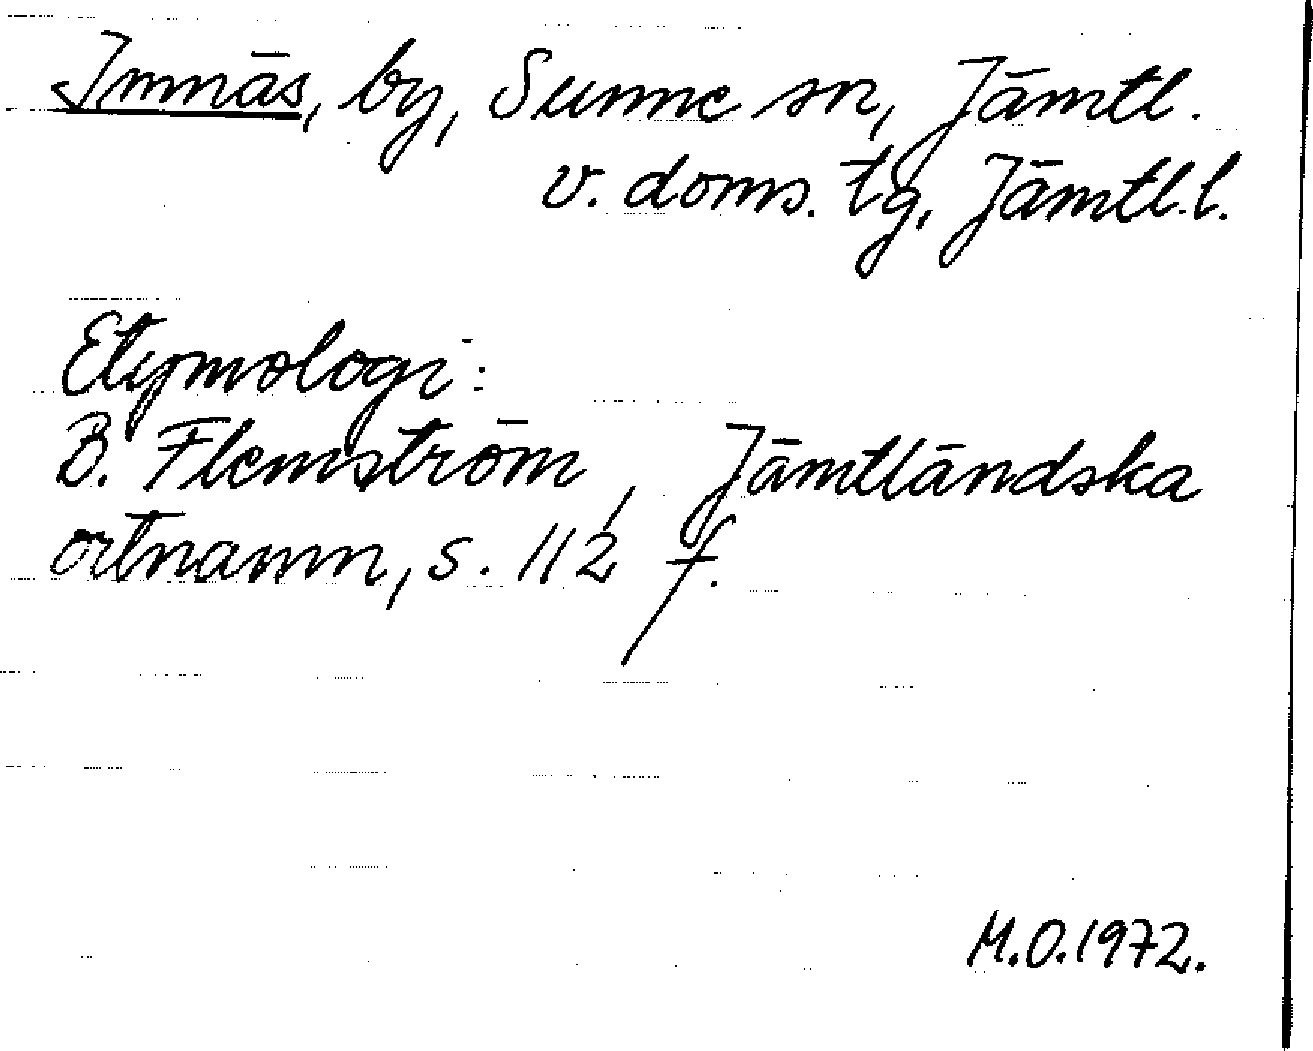 Innnäs, by, Sunne sn, Jämtl.
v. doms. tg, Jämtl.l.
Etymologi:
B. Flemström, Jämtländska
ortnamn, s. 112 f.
M.O.1972.